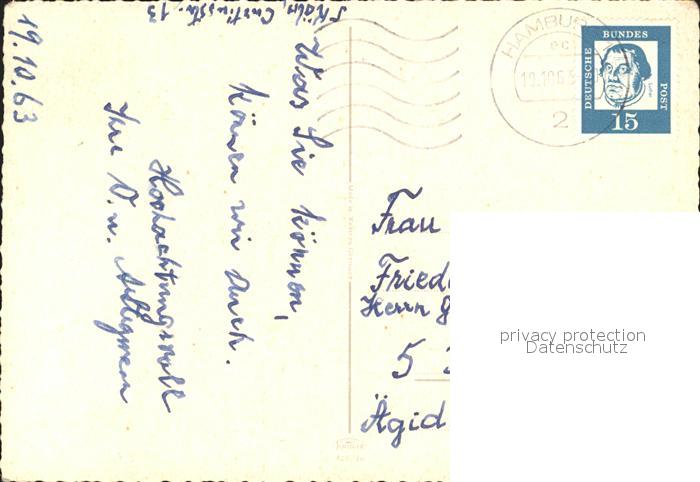 19.10.63
5 Köln Curtiusstr. 13
Was Sie können,
können wir auch.
Hochachtungsvoll
Ihre D. u.
HAMBURG 1
ec
19.10.6
2
DEUTSCHE
BUNDES
POST
15
Frau
Fried
Herrn G
5
Ägid
privacy protection
Datenschutz
KRÜGER